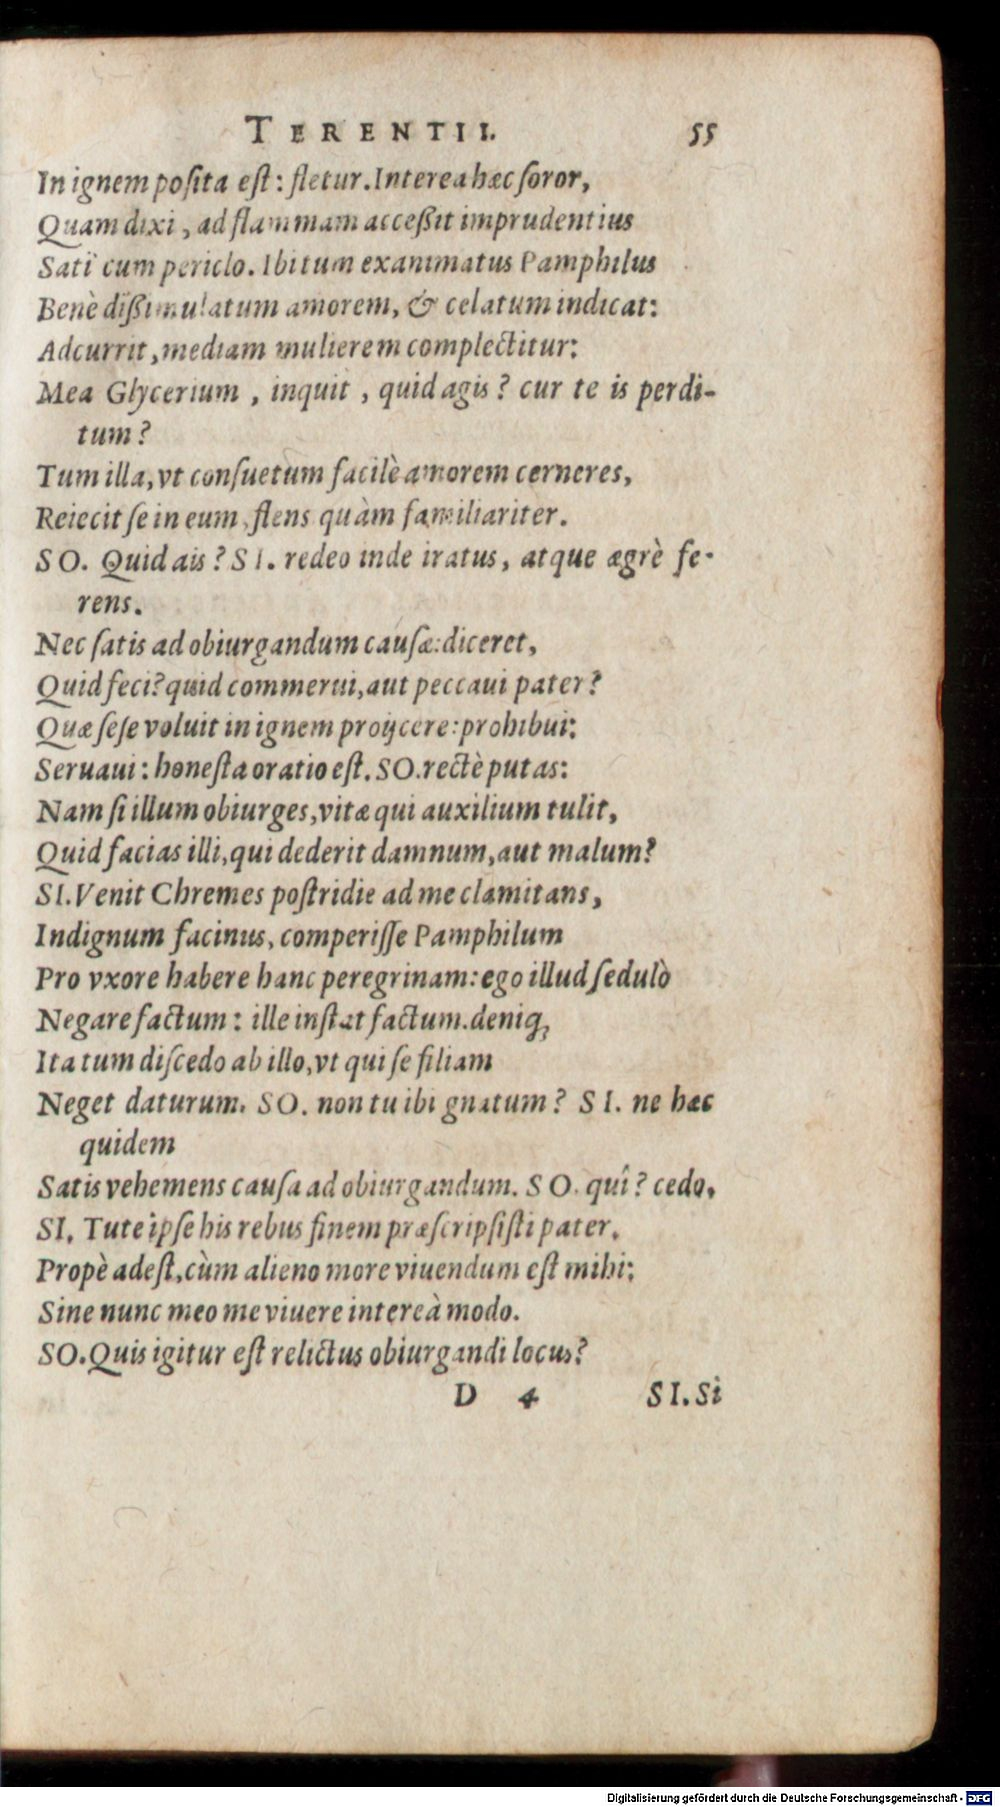 TERENTII. 55
In ignem poſita eſt: fletur. Interea hæc ſoror,
Quam dixi, ad flammam acceßit imprudentius
Sati' cum periclo. Ibi tum exanimatus Pamphilus
Benè dißimulatum amorem, & celatum indicat:
Adcurrit, mediam mulierem complectitur:
Mea Glycerium, inquit, quid agis? cur te is perdi-
tum?
Tum illa, vt conſuetum facilè amorem cerneres,
Reiecit ſe in eum, flens quàm familiariter.
SO. Quid ais? SI. redeo inde iratus, atque ægrè fe-
rens.
Nec ſatis ad obiurgandum cauſæ: diceret,
Quid feci? quid commerui, aut peccaui pater?
Quæ ſeſe voluit in ignem proijcere: prohibui:
Seruaui: honeſta oratio eſt. SO. rectè putas:
Nam ſi illum obiurges, vitæ qui auxilium tulit,
Quid facias illi, qui dederit damnum, aut malum?
SI. Venit Chremes poſtridie ad me clamitans,
Indignum facinus, comperiſſe Pamphilum
Pro vxore habere hanc peregrinam: ego illud ſedulò
Negare factum: ille inſtat factum. deniq;
Ita tum diſcedo ab illo, vt qui ſe filiam
Neget daturum. SO. non tu ibi gnatum? SI. ne hæc
quidem
Satis vehemens cauſa ad obiurgandum. SO. quî? cedo.
SI. Tute ipſe his rebus finem præſcripſiſti pater.
Propè adeſt, cùm alieno more viuendum eſt mihi:
Sine nunc meo me viuere intereà modo.
SO. Quis igitur eſt relictus obiurgandi locus?
D 4 SI. Si
Digitalisierung gefördert durch die Deutsche Forschungsgemeinschaft - DFG